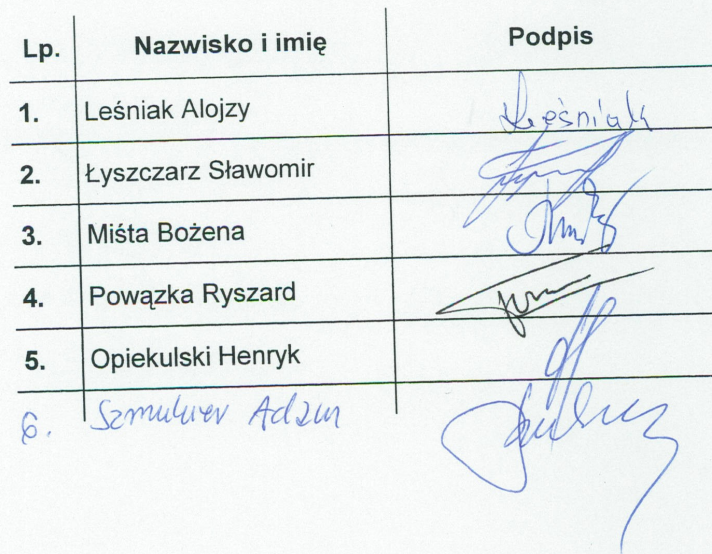 Lp. Nazwisko i imię Podpis
1. Leśniak Alojzy Leśniak
2. Łyszczarz Sławomir
3. Miśta Bożena
4. Powązka Ryszard
5. Opiekulski Henryk
6. Adam